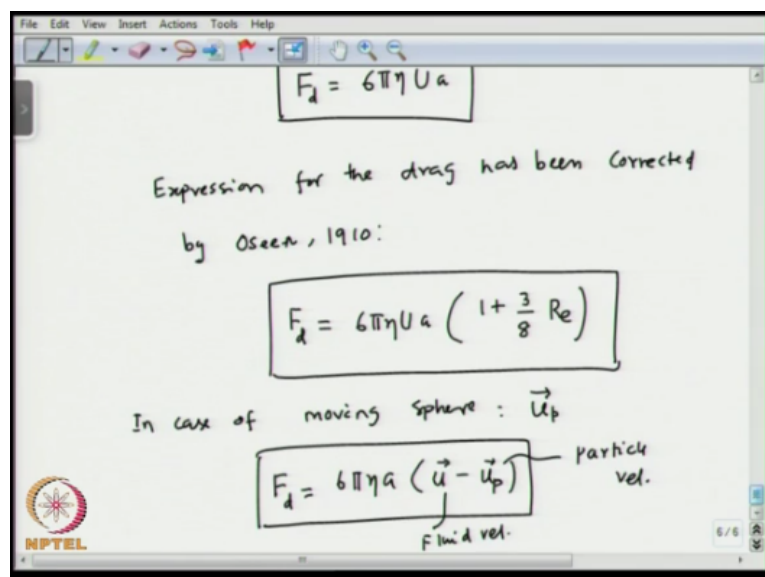 File Edit View Insert Actions Tools Help
F_d = 6πηUa
Expression for the drag has been corrected
by Oseen, 1910:
F_d = 6πηUa (1 + 3/8 Re)
In case of moving sphere : u⃗_p
F_d = 6πηa (u⃗ - u⃗_p) particle
vel.
Fluid vel.
NPTEL
6/6